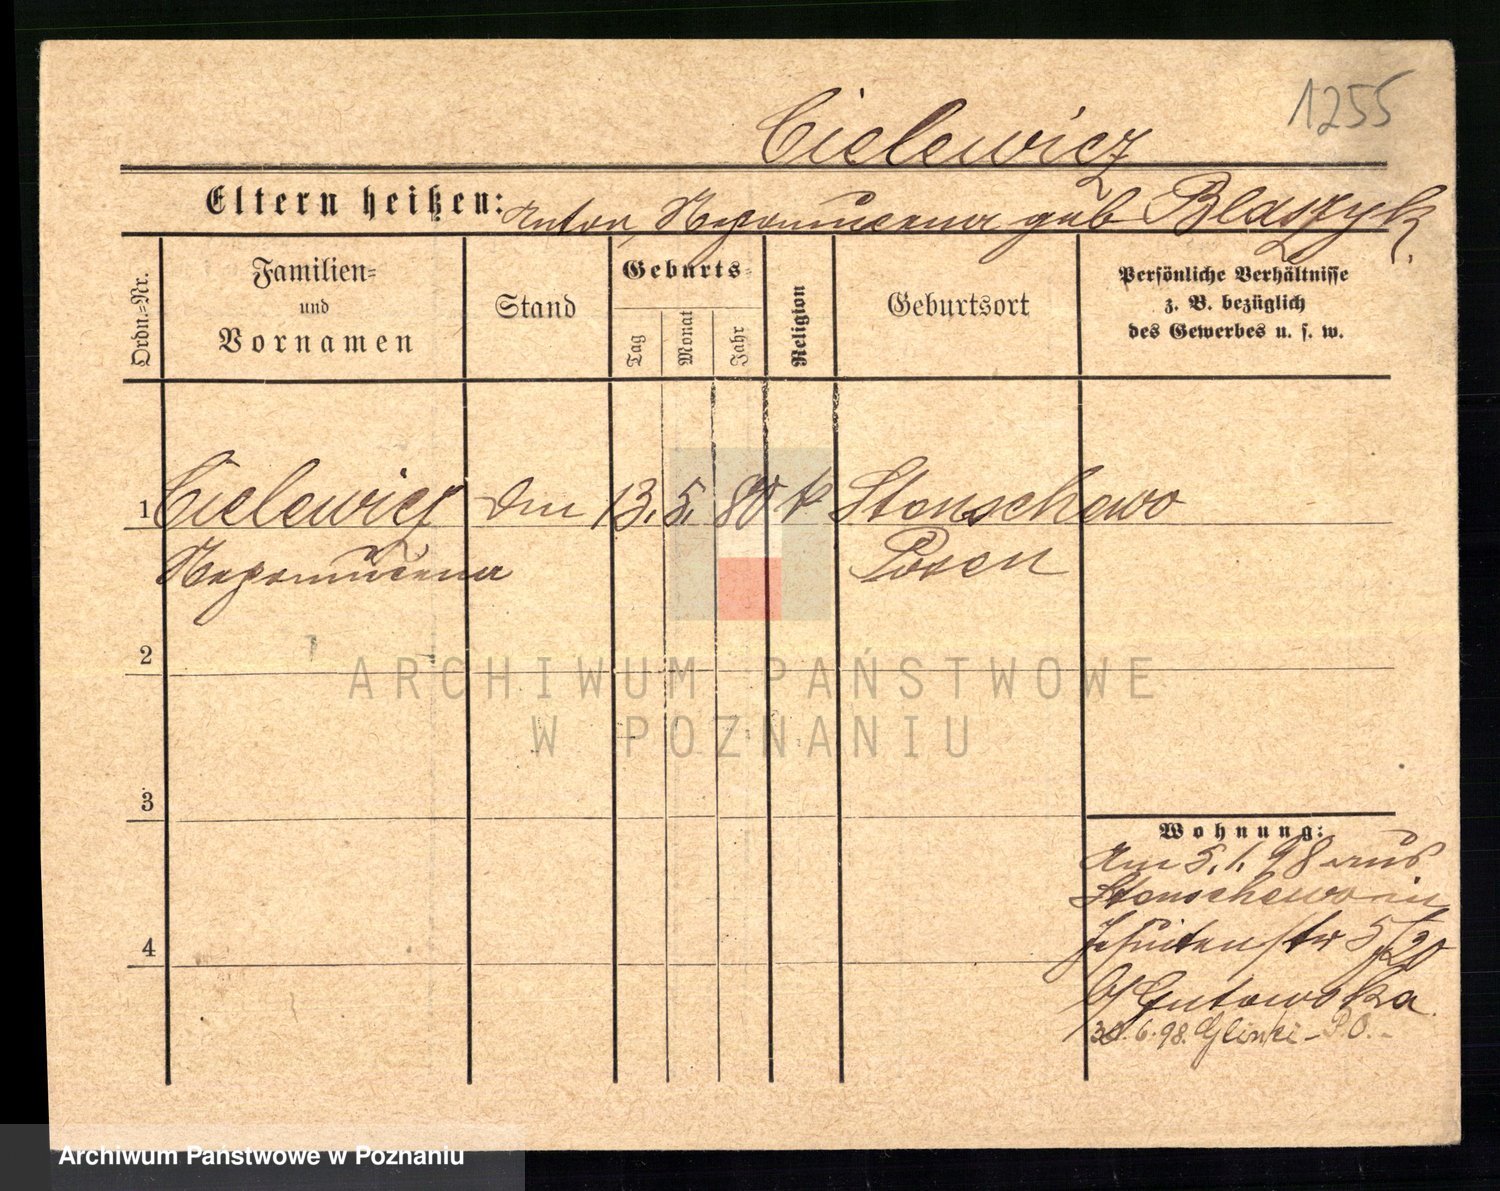 1255
Cielewicz
Eltern heißen: Anton, Nepomucena geb Blaszyk.
Ordn.=Nr.
Familien=
und
Vornamen
Stand
Geburts=
Tag
Monat
Jahr
Religion
Geburtsort
Persönliche Verhältnisse
z. B. bezüglich
des Gewerbes u. s. w.
1 Cielewicz 13. 5. 80 k Stenschewo
Nepomucena Posen
2
ARCHIWUM PAŃSTWOWE
W POZNANIU
3
4
Wohnung:
Am 5. 1. 98 aus
Stenschewo in
Jesuitenstr 5/20
b/ Gutowska
30. 6. 98. Glinki - P.O. -
Archiwum Państwowe w Poznaniu